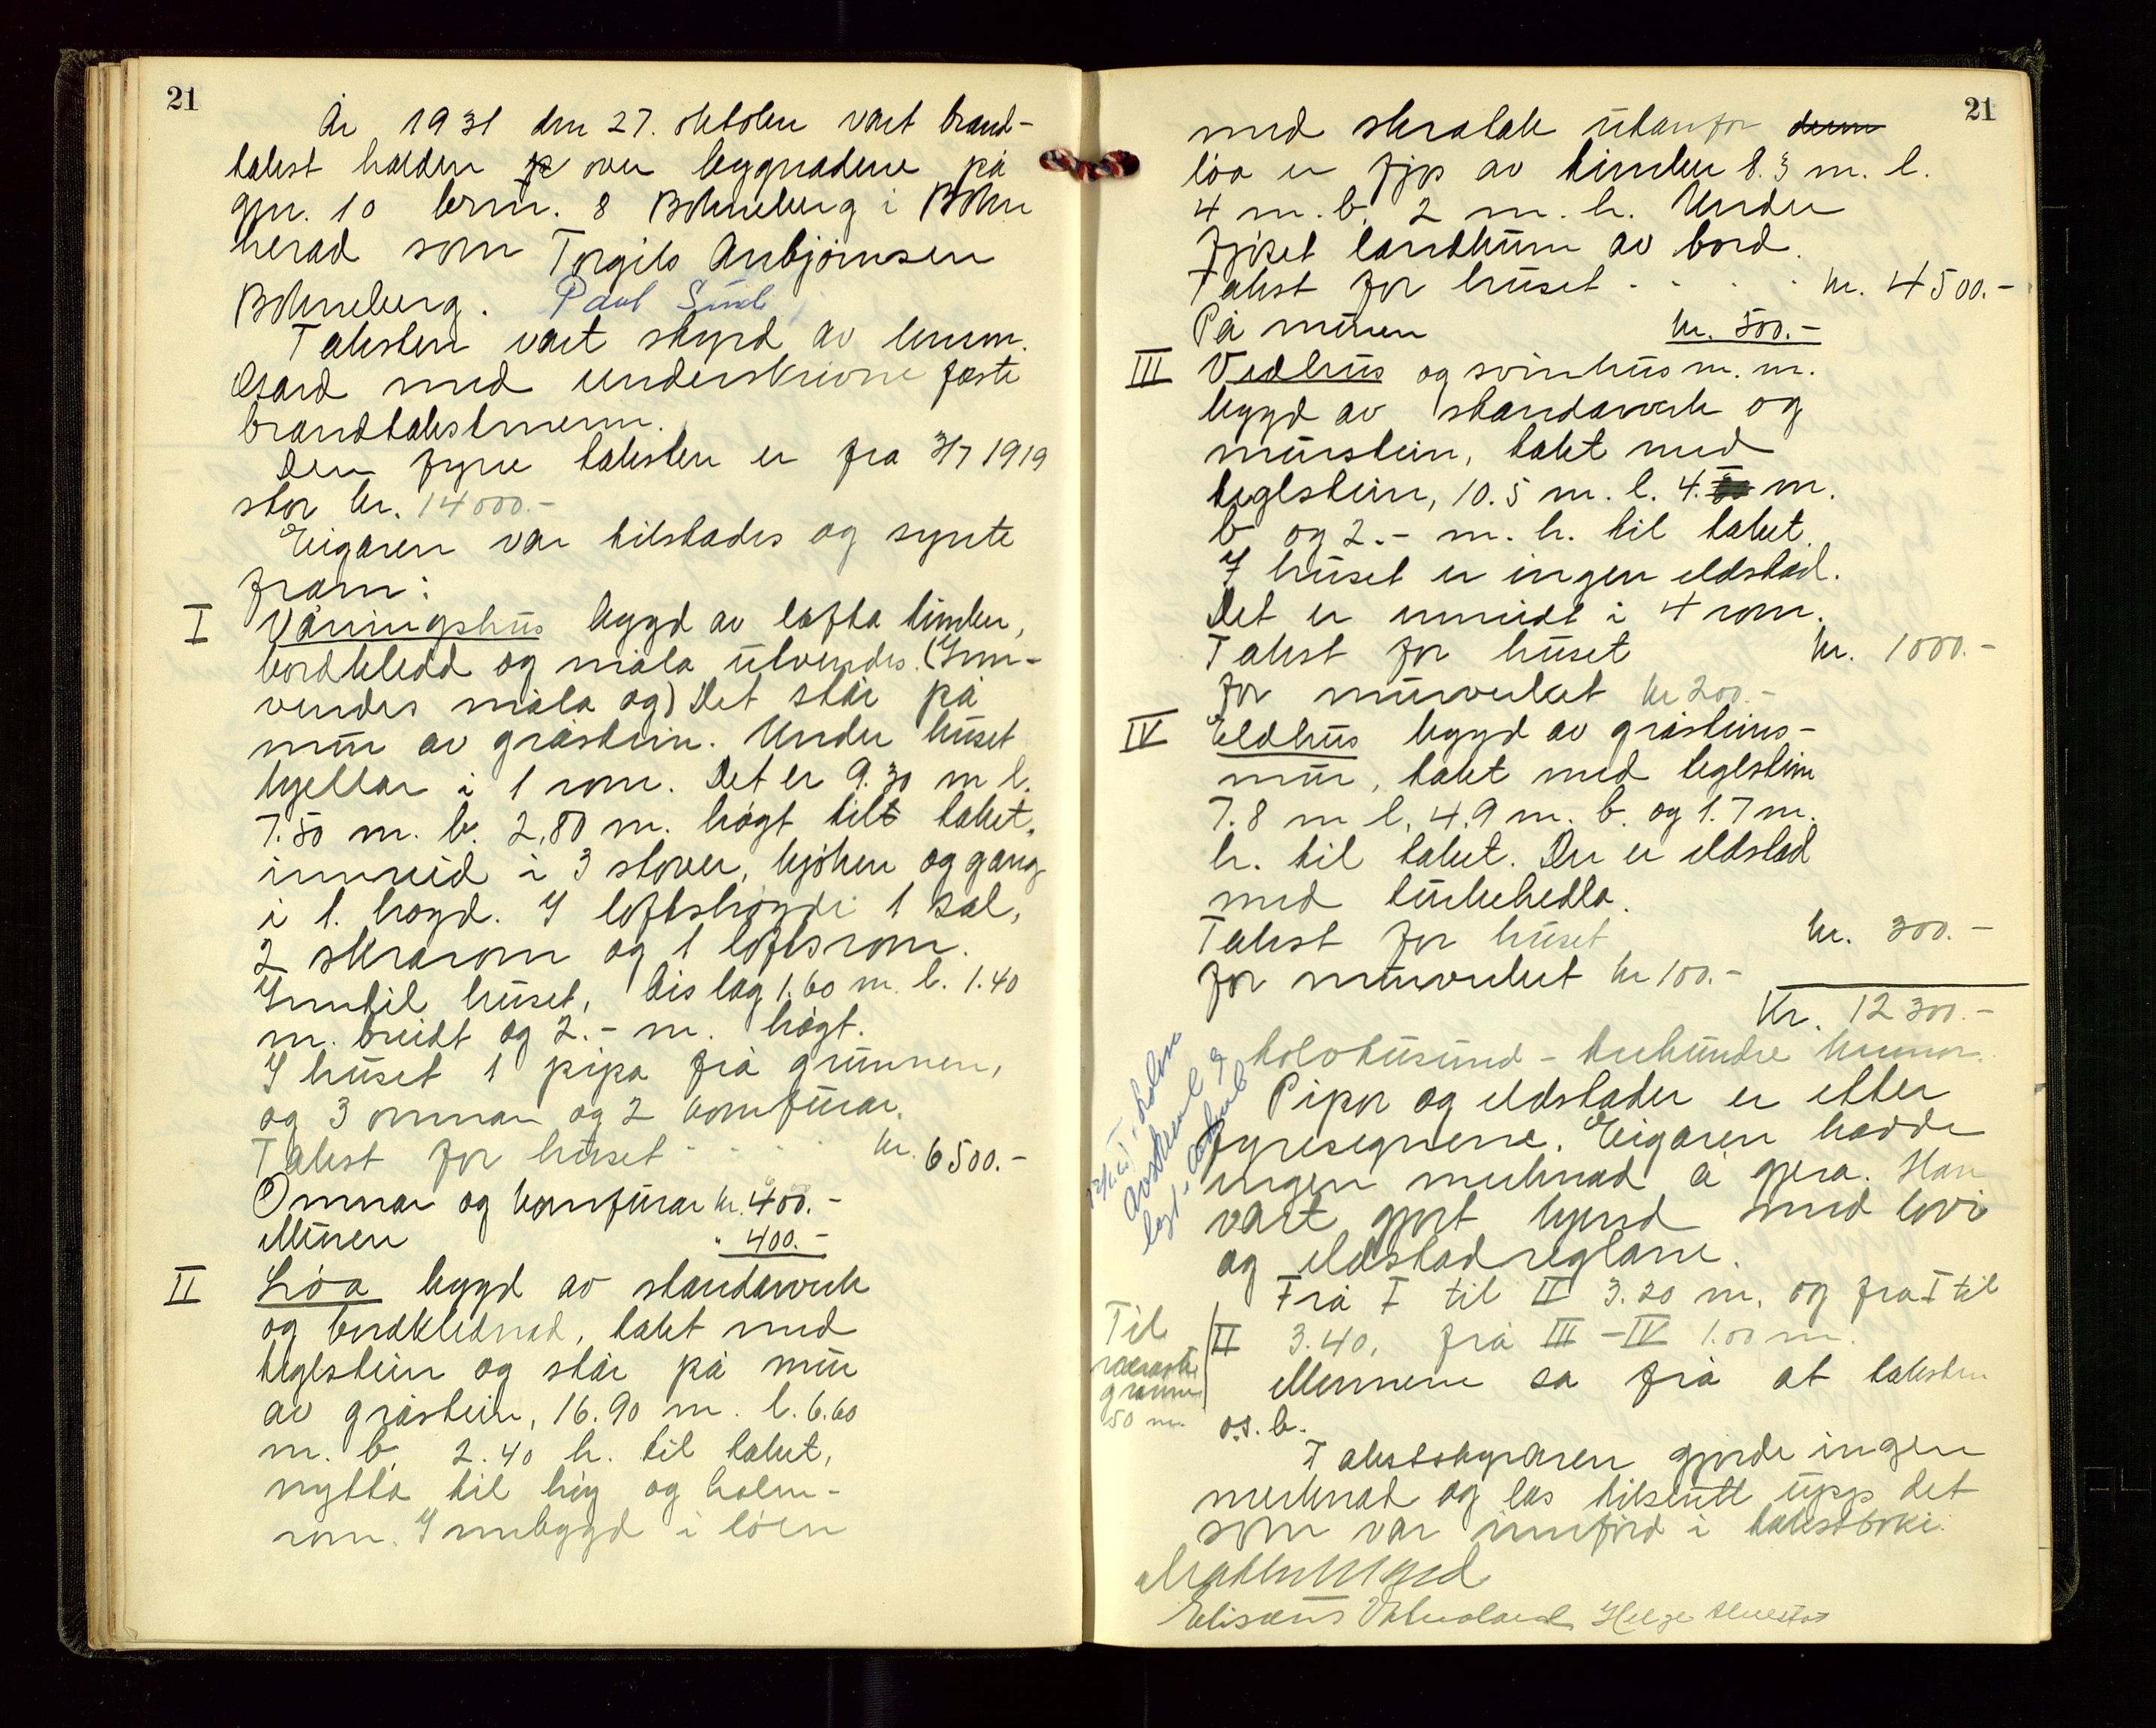 21
År 1931 den 27. oktober vart brand-
takst halden over bygnadene på
gnr. 10 brnr. 8 i
herad som Torgils Anbjørnsen
Paul
Taksten vart styrd av lensm.
med underskrivne faste
brandtakstmenn.
Den fyrre taksten er fra 3/7 1919
stor kr. 14000.-
Eigaren var tilstades og synte
fram:
I Våningshus bygd av lafta timber,
bordkledd og måla utvendes. (Inn-
vendes måla og) Det står på
mur av gråstein. Under huset
kjellar i 1 rom. Det er 9.30 m l.
7.50 m. b. 2,80 m. høgt tilt taket,
innreid i 3 stover, kjøken og gang
i 1. høgd. I loftshøgdi 1 sal,
2 skrarom og 1 loftsrom.
Inntil huset, bislag 1.60 m. l. 1.40
m. breidt og 2.- m. høgt.
I huset 1 pipa frå grunnen,
og 3 omnar og 2 komfurar.
Takst for huset - - - - kr. 6500.-
Omnar og komfurar kr. 400.-
Muren " 400.-
II Løa bygd av standarverk
og bordklednad, tekt med
teglstein og står på mur
av gråstein, 16.90 m. l. 6.60
m. b. 2.40 h. til taket,
nytta til høy og halm-
rom. Innbygd i løen
21
med skratak utanfor denn
løa er fjøs av timber 8.3 m. l.
4 m. b. 2 m. h. Under
fjøset landkum av bord.
Takst for huset - - - - kr. 4500.-
På muren kr. 500.-
III Vedhus og svinhus m. m.
bygd av standarverk og
murstein, tekt med
teglstein, 10.5 m. l. 4. m.
b og 2.- m. h. til taket.
I huset er ingen eldstad.
Det er innreidt i 4 rom.
Takst for huset kr. 1000.-
for murverket kr 200.-
IV Eldhus bygd av gråsteins-
mur, tekt med teglstein
7.8 m l, 4.9 m. b. og 1.7 m.
h. til taket. Der er eldstad
med
Takst for huset kr. 300.-
for murverket kr 100.-
Kr. 12300.-
tolvtusund - trehundre kronor.
Pipor og eldstader er etter
fyresegnene. Eigaren hadde
ingen merknad å gjera. Han
vart gjort kjend med lovi
og eldstadreglane.
Frå I til II 3.20 m. og fra I til
II 3.40, frå III - IV 1.00 m.
Til
næraste
granne
50 m.
Mennene sa frå at taksten
o.s.b.
Takststyraren gjorde ingen
merknad og las tilslutt upp det
som var innført i takstboki.
Elisæus Helge